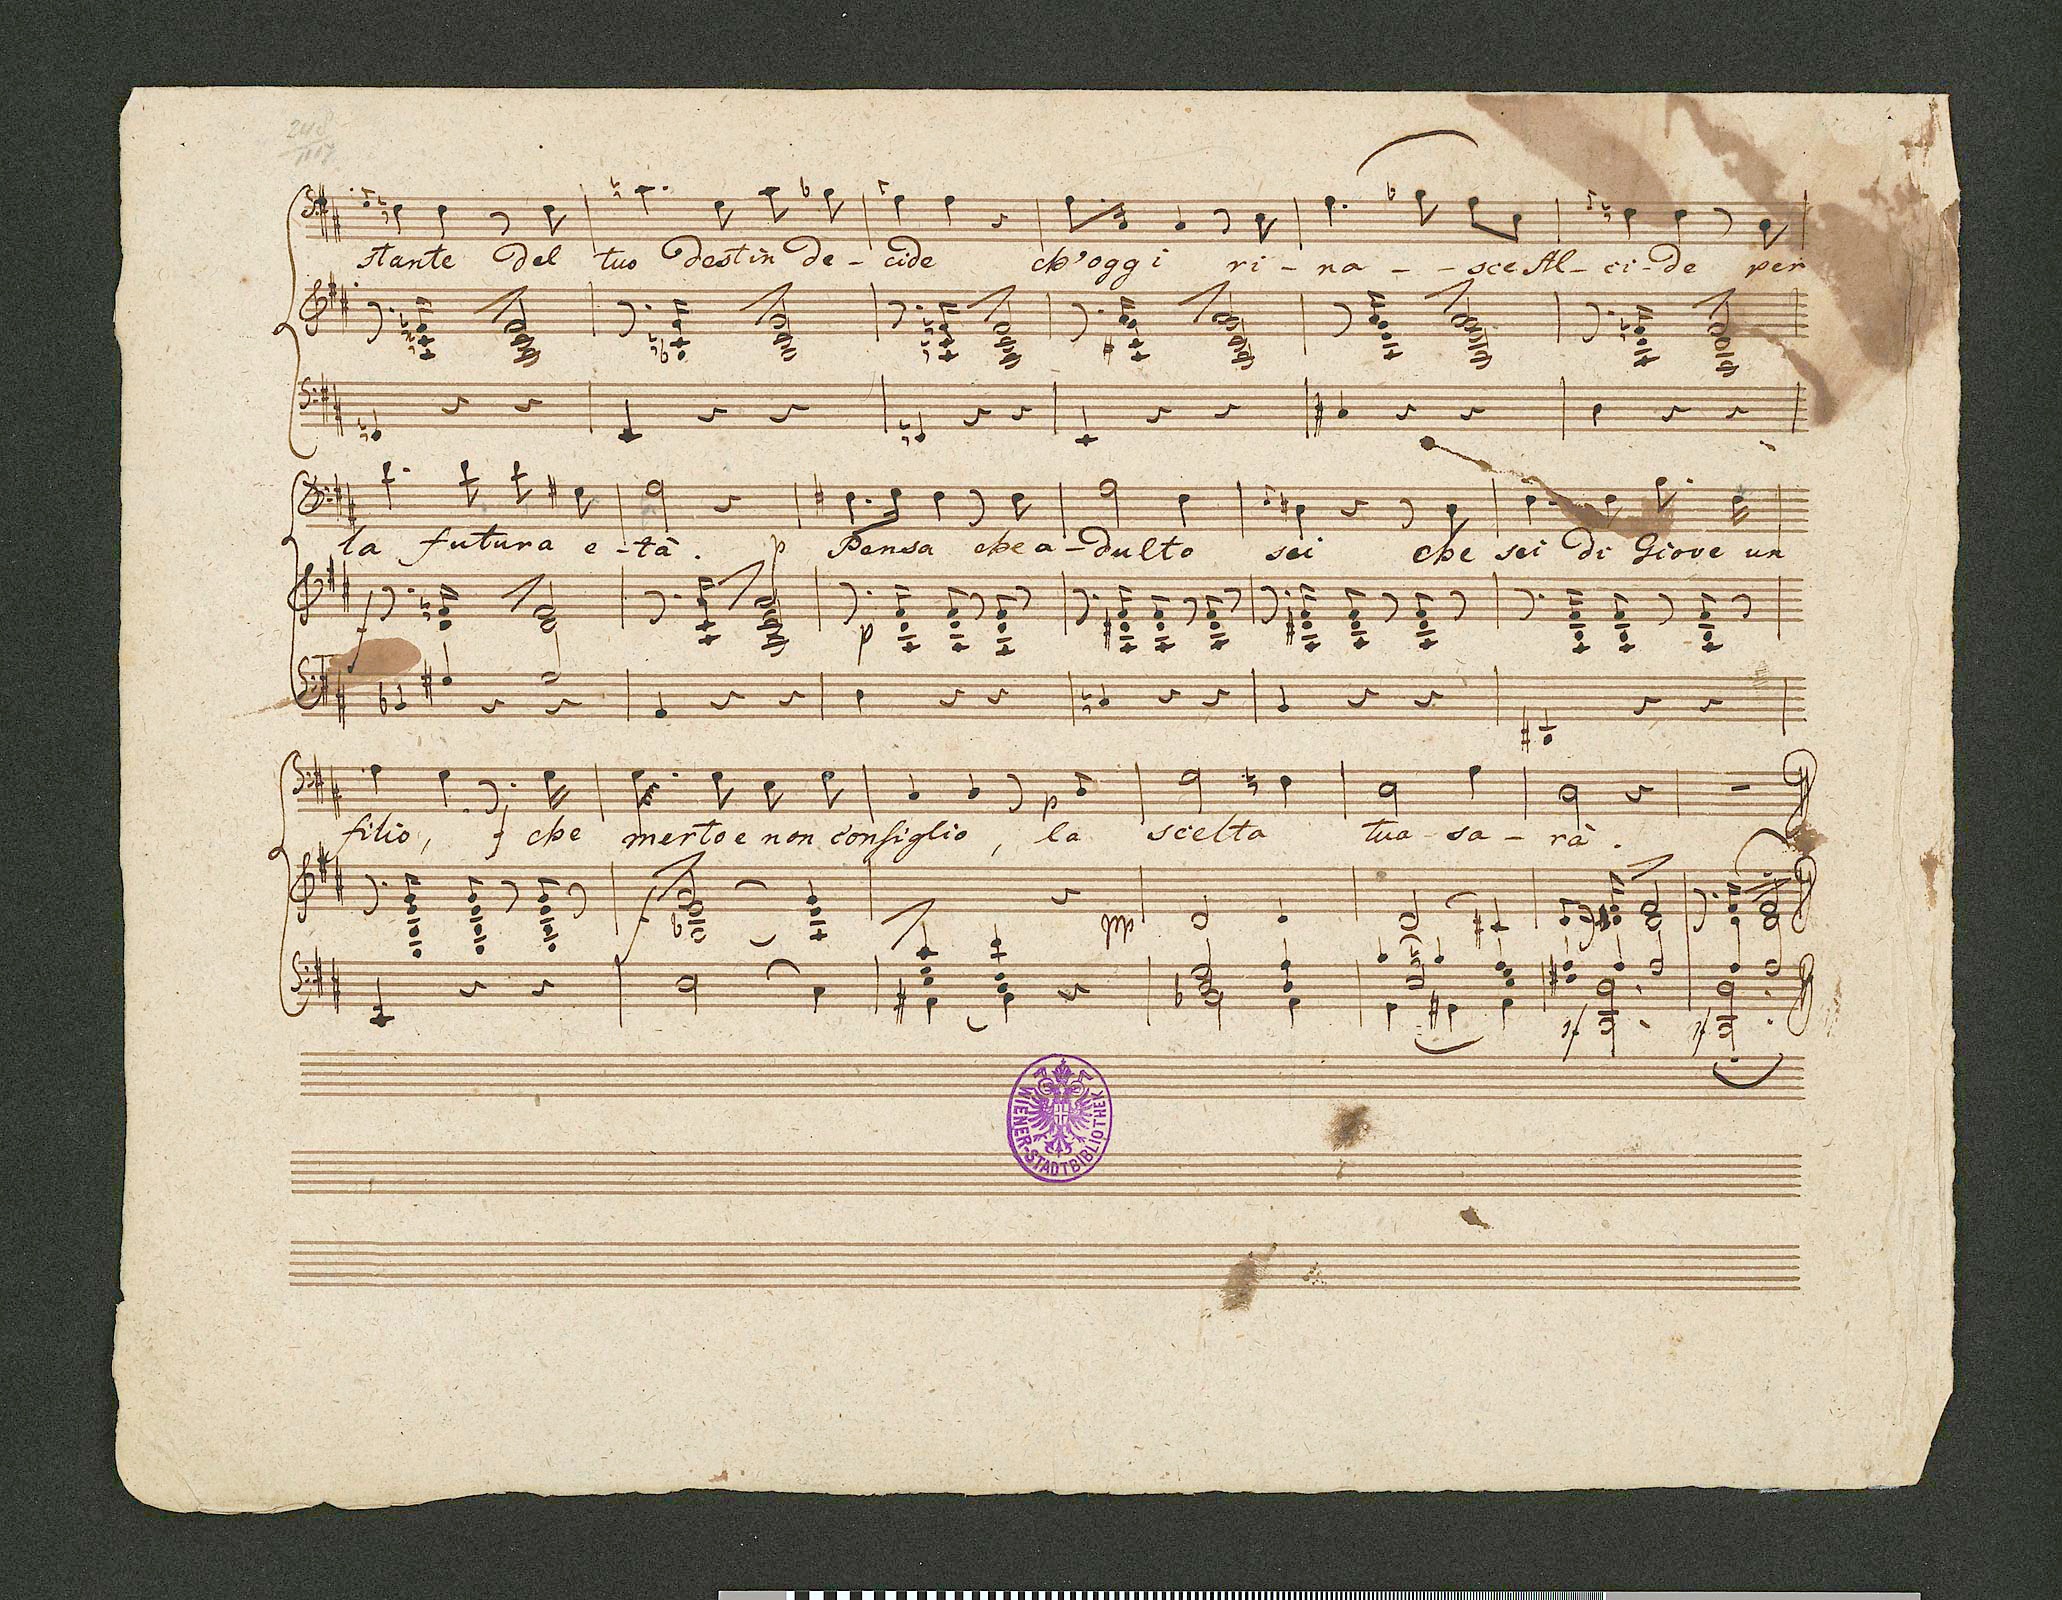 248
stante del tuo destin de - cide ch'oggi ri - na - - sce Al - ci - de per
la futura e - tà. p Pensa che a - dulto sei che sei di Giove un
f p
filio, f che merto e non consiglio, p la scelta tua sa - rà.
f
sf sf
WIENER-STADTBIBLIOTHEK